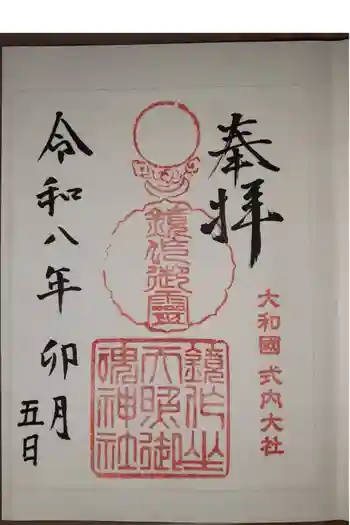 奉拝
大和國式内大社
鏡作御靈
鏡作坐
天照御
魂神社
令和八年 卯月
五日